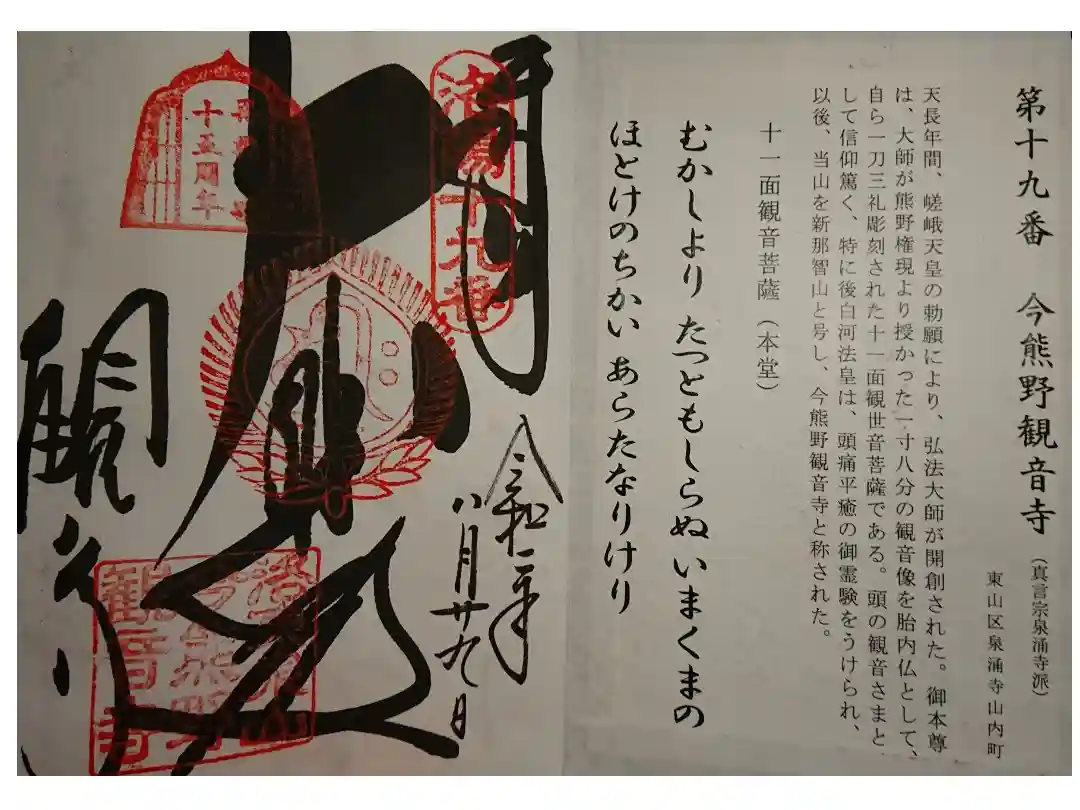 第十九番　今熊野観音寺（真言宗泉涌寺派）
東山区泉涌寺山内町
天長年間、嵯峨天皇の勅願により、弘法大師が開創された。御本尊
は、大師が熊野権現より授かった一寸八分の観音像を胎内仏として、
自ら一刀三礼彫刻された十一面観世音菩薩である。頭の観音さまと
して信仰篤く、特に後白河法皇は、頭痛平癒の御霊験をうけられ、
以後、当山を新那智山と号し、今熊野観音寺と称された。
十一面観音菩薩（本堂）
むかしより たつともしらぬ いまくまの
ほとけのちかい あらたなりけり
洛陽十九番
令和二年
八月廿九日
十五周年
今熊野
観音寺